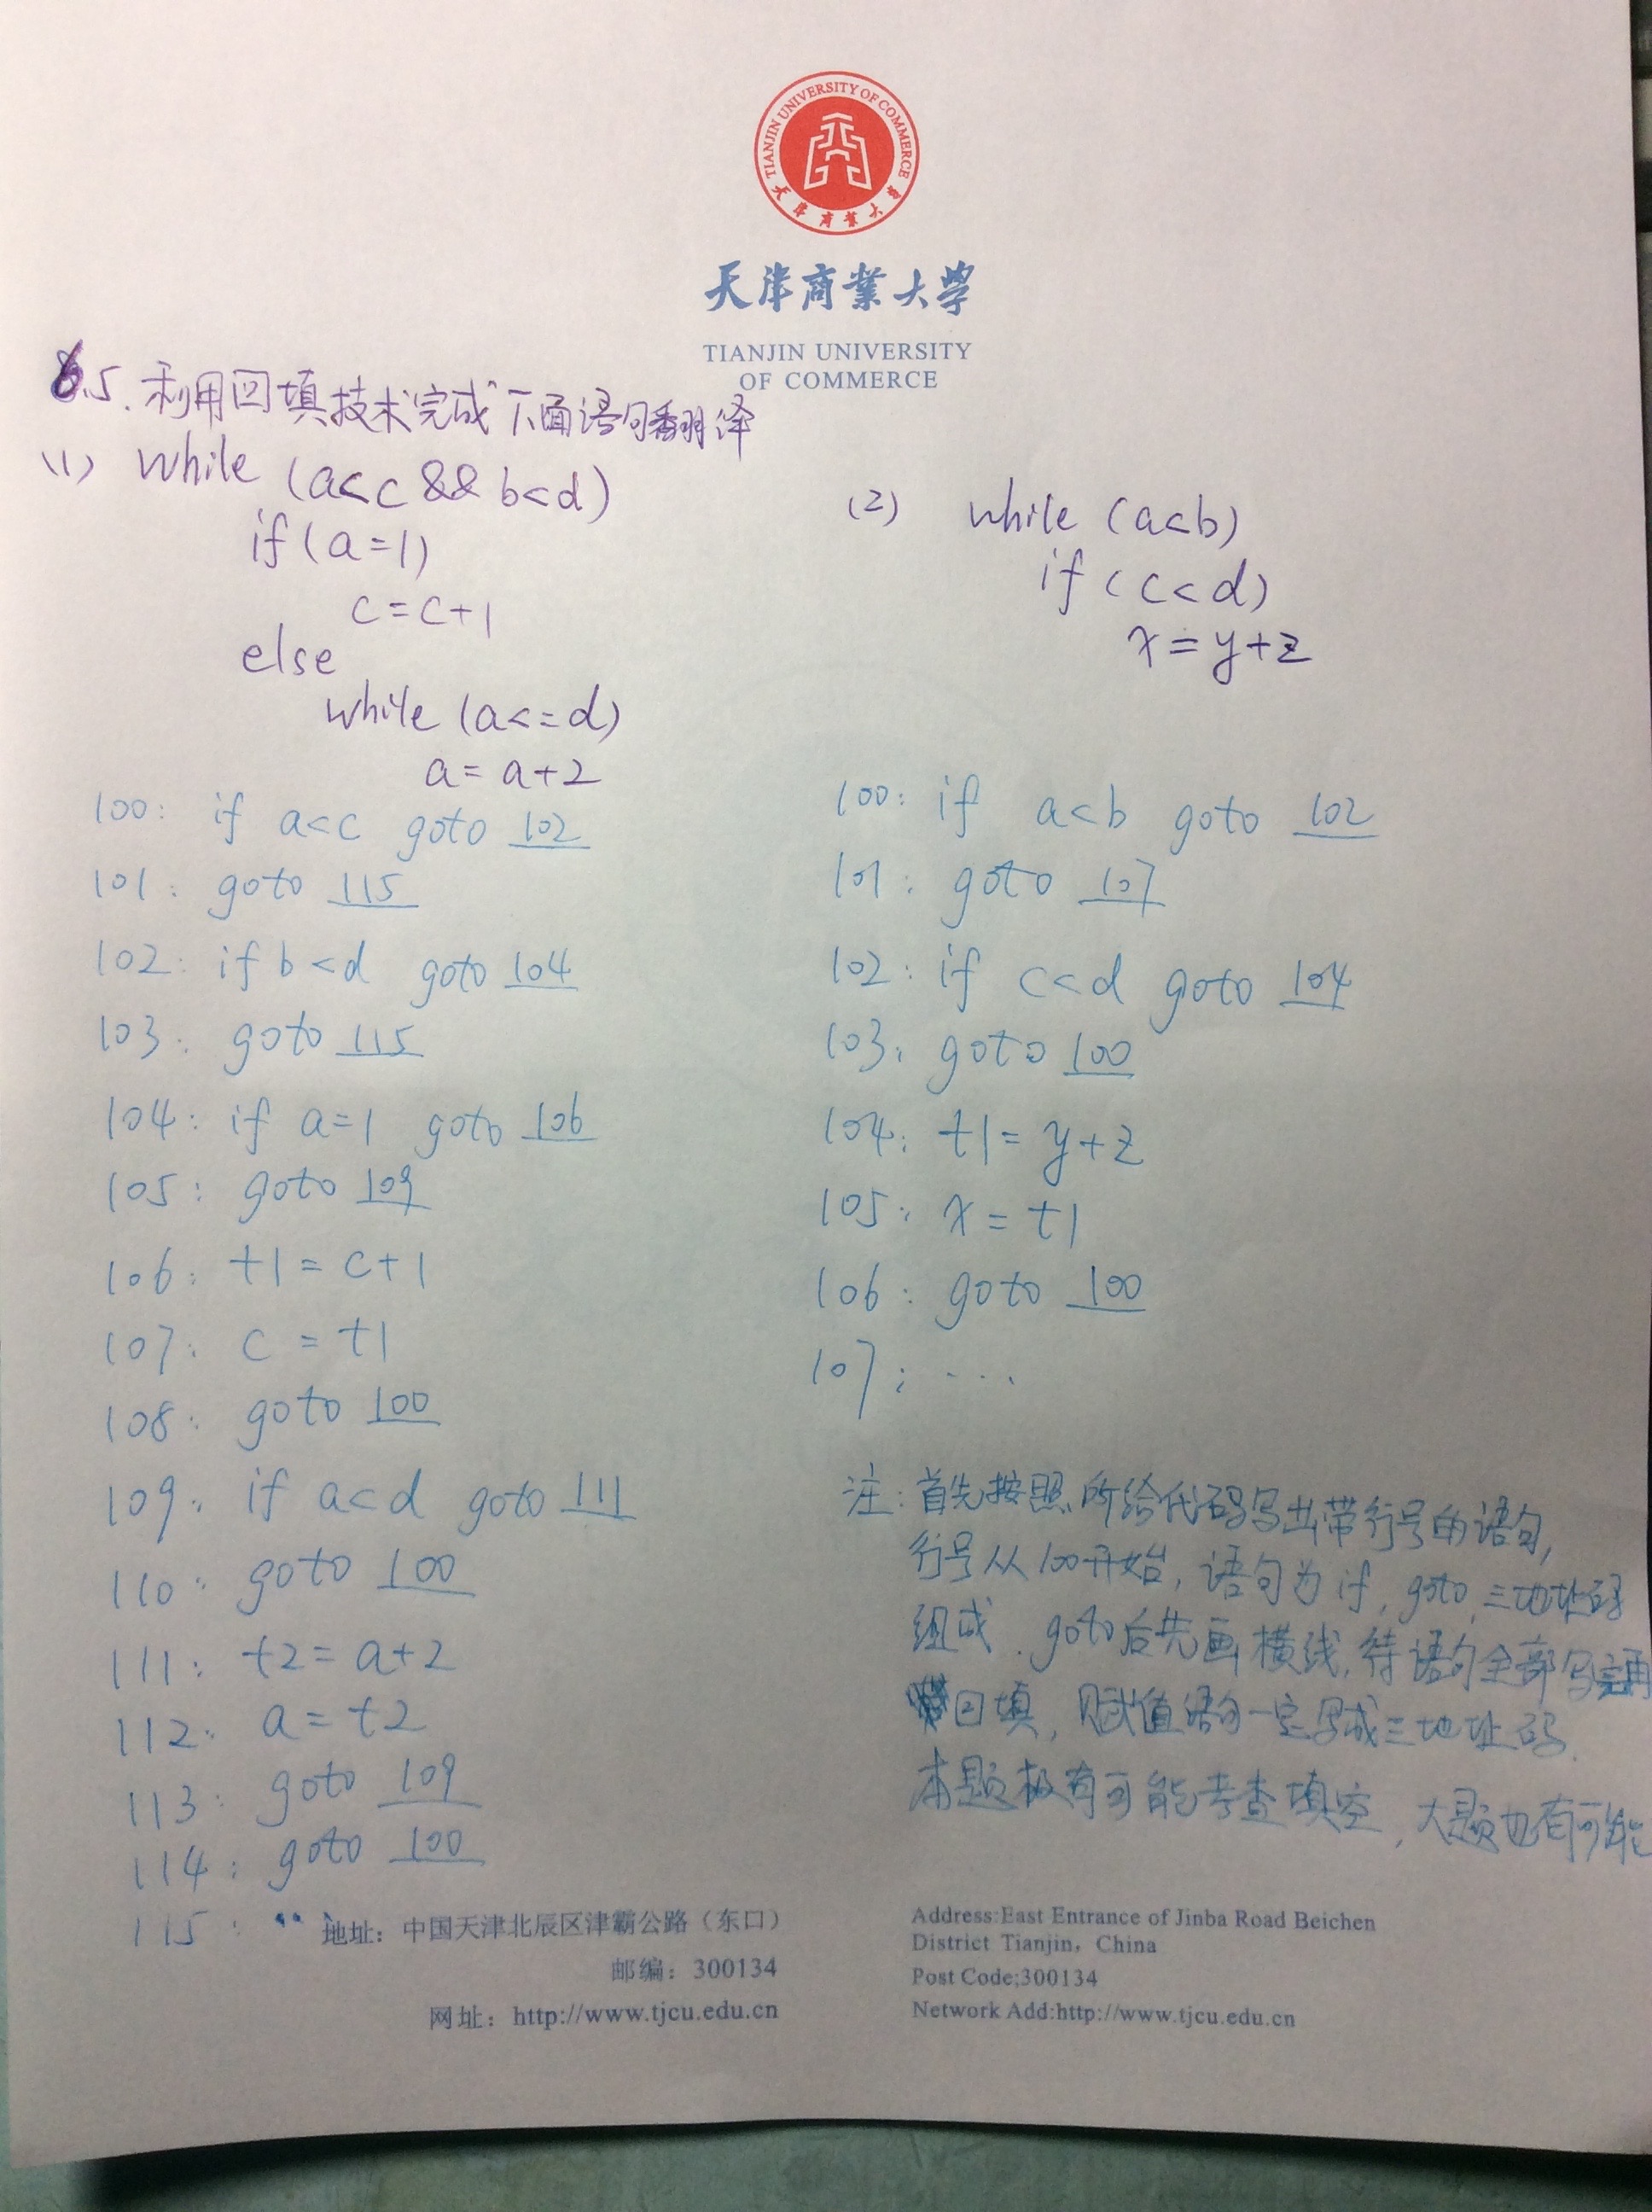 TIANJIN UNIVERSITY OF COMMERCE
天津商業大學
天津商業大学
TIANJIN UNIVERSITY
OF COMMERCE
6.5. 利用回填技术完成下面语句翻译
(1) while (a<c && b<d)
if (a=1)
c=c+1
else
while (a<=d)
a=a+2
100: if a<c goto 102
101: goto 115
102: if b<d goto 104
103: goto 115
104: if a=1 goto 106
105: goto 109
106: t1=c+1
107: c=t1
108: goto 100
109: if a<d goto 111
110: goto 100
111: t2=a+2
112: a=t2
113: goto 109
114: goto 100
115:
(2) while (a<b)
if (c<d)
x=y+z
100: if a<b goto 102
101: goto 107
102: if c<d goto 104
103: goto 100
104: t1=y+z
105: x=t1
106: goto 100
107: ...
注: 首先按照所给代码写出带行号的语句,
行号从100开始, 语句为if, goto, 三地址码
组成. goto后先画横线, 待语句全部写完再
回填, 赋值语句一定写成三地址码.
本题极有可能考查填空, 大题也有可能
地址：中国天津北辰区津霸公路（东口）
邮编：300134
网址：http://www.tjcu.edu.cn
Address:East Entrance of Jinba Road Beichen
District Tianjin, China
Post Code;300134
Network Add:http://www.tjcu.edu.cn